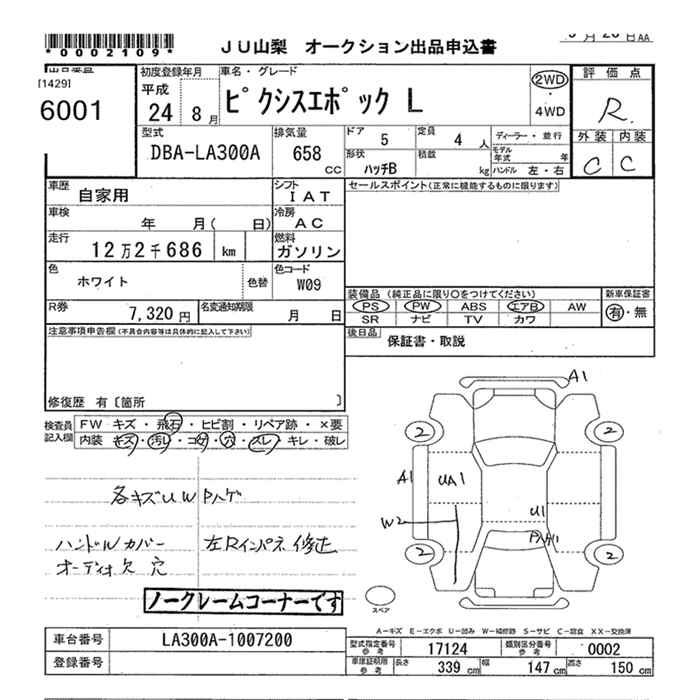 *0002109*
JU山梨 オークション出品申込書
AA
[1429]
6001
初度登録年月
平成
24 8月
車名・グレード
ピクシスエポック L
2WD
・
4WD
評価点
R
外装 内装
C C
型式
DBA-LA300A
排気量
658
CC
ドア 5
定員 4 人
形状
ハッチB
積載
kg
ディーラー・並行
モデル年式 年
ハンドル 左・右
車歴
自家用
シフト
IAT
セールスポイント(正常に機能するものに限ります)
車検
年 月( 日)
冷房
AC
走行
12万2千686 km
燃料
ガソリン
色
ホワイト
色替
色コード
W09
装備品 (純正品に限り○をつけてください)
PS PW ABS エアB AW
SR ナビ TV カワ
新車保証書
有・無
R券
7,320円
名変通知期限
月 日
後日品
保証書・取説
注意事項申告欄(不具合内容等は具体的に記入して下さい)
修復歴 有〔箇所 〕
検査員記入欄
FW キズ・飛石・ヒビ割・リペア跡・×要
内装 キズ・汚れ・コゲ・穴・スレ・キレ・破レ
各キズUW Pハゲ
ハンドルカバー 左Rインパネ修正
オーディオ欠 穴
ノークレームコーナーです
A1
2 2
A1 UA1
W2
U1
2 2
スペア
A－キズ E－エクボ U－凹み W－補修跡 S－サビ C－腐食 XX－交換済
車台番号
LA300A-1007200
登録番号
型式指定番号
参考
17124
類別区分番号
参考
0002
車庫証明用
参考
長さ 339 cm
幅 147 cm
高さ 150 cm